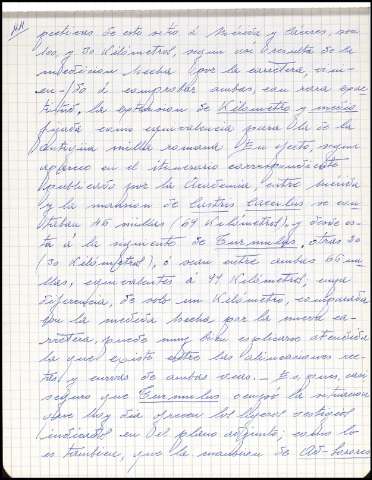 pecticas de este sitio á Mérida y Cáceres, son
las, y 30 Kilómetros, segun así resulta de la
medicion hecha por la carretera, vin-
en-/do á comprobar ambas, con rara exac-
titud, la extension de Kilómetro y medio
fijada como equivalencia para la de la
antigua milla romana. En efecto, segun
aparece en el itinerario correspondiente
publicado por la Academia, entre Mérida
y la mansion de Castris Caecilis se con-
taban 46 millas (69 Kilómetros), y desde es-
ta á la siguiente de Turmulus, otras 20
(30 Kilómetros), ó sean entre ambas 66 mi-
llas, equivalentes á 99 Kilómetros, cuya
diferencia, de solo un Kilómetro, comparada
con la medida hecha por la nueva ca-
rretera, puede muy bien explicarse atendida
la que existe entre las alineaciones rec-
tas y curvas de ambas vias. _ Es, pues, casi
seguro que Turmulus ocupó la situacion
que hoy dia ofrecen los lijeros vestigios
indicados en el plano adjunto; como lo
es tambien, que la mansion de Ad-Sorores